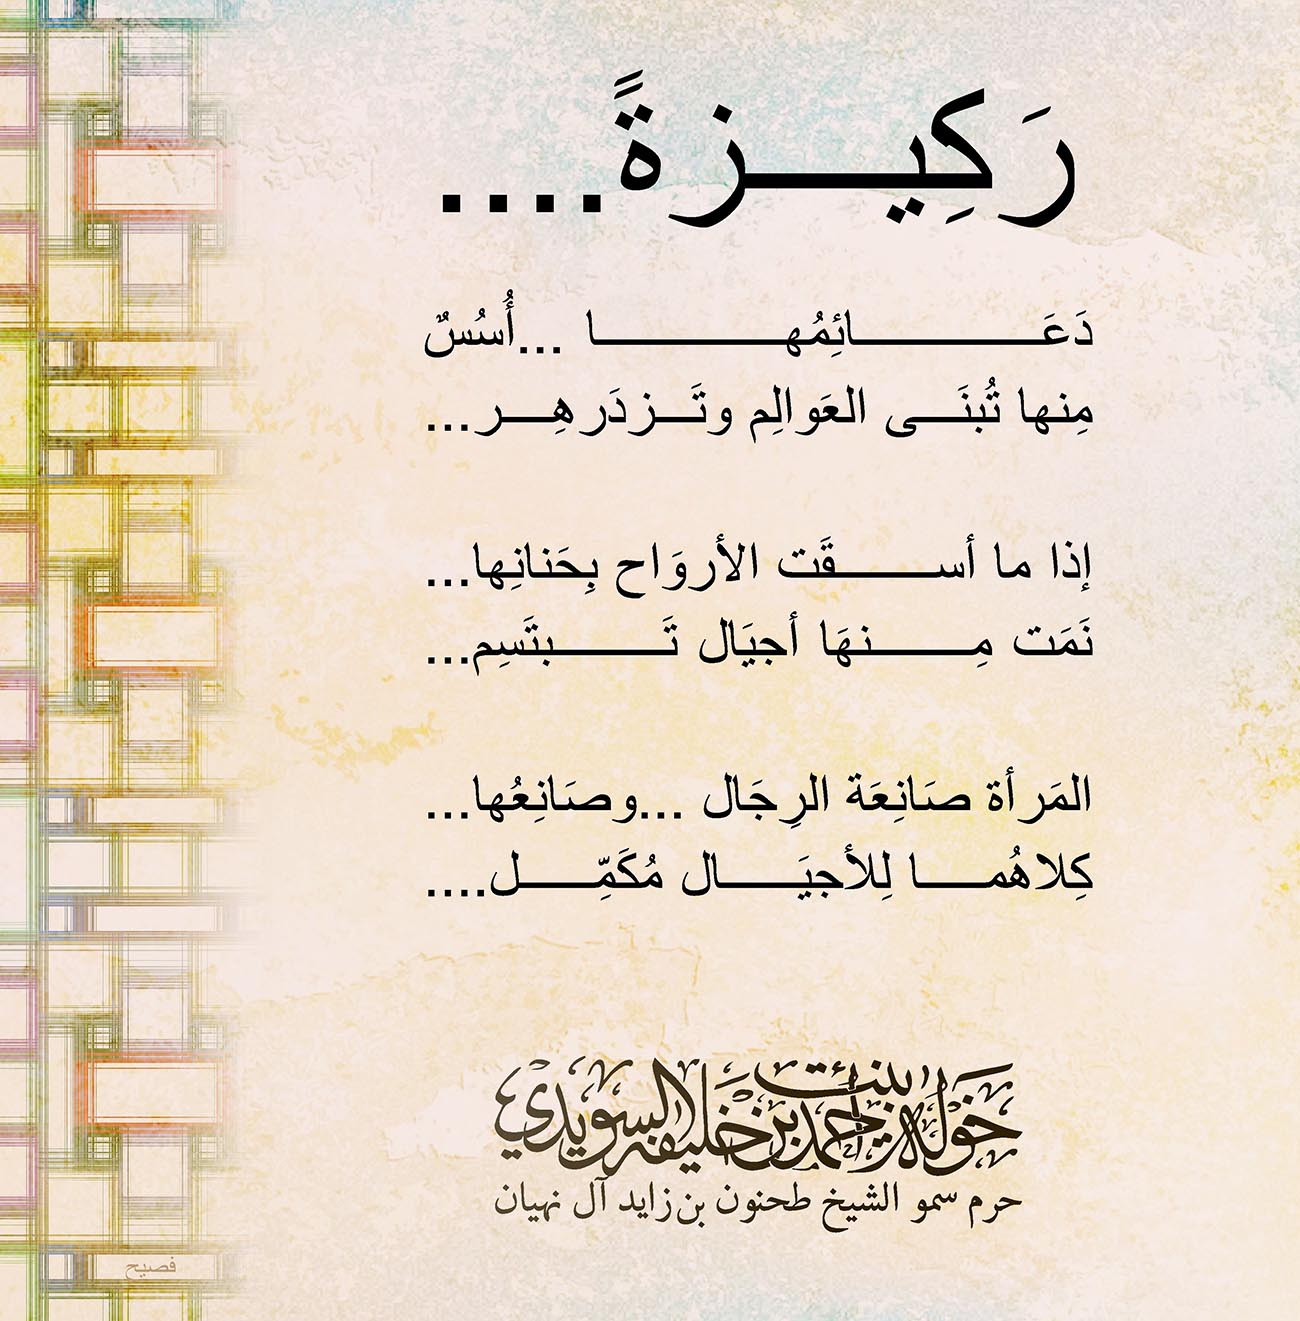 رَكِيـــزةً....
دَعَـــــائِمُهـــــــا ...أُسُسٌ
مِنها تُبنَـــى العَوالِم وتَـــزدَرهِـــر...
إذا ما أســـــقَت الأروَاح بِحَنانِها...
نَمَت مِـــــنهَا أجيَال تَـــــبتَسِم...
المَرأة صَانِعَة الرِجَال ...وصَانِعُها...
كِلاهُمـــــا لِلأجيَـــــال مُكَمِّـــــل....
خولة بنت أحمد بن خليفة السويدي
حرم سمو الشيخ طحنون بن زايد آل نهيان
فصيح